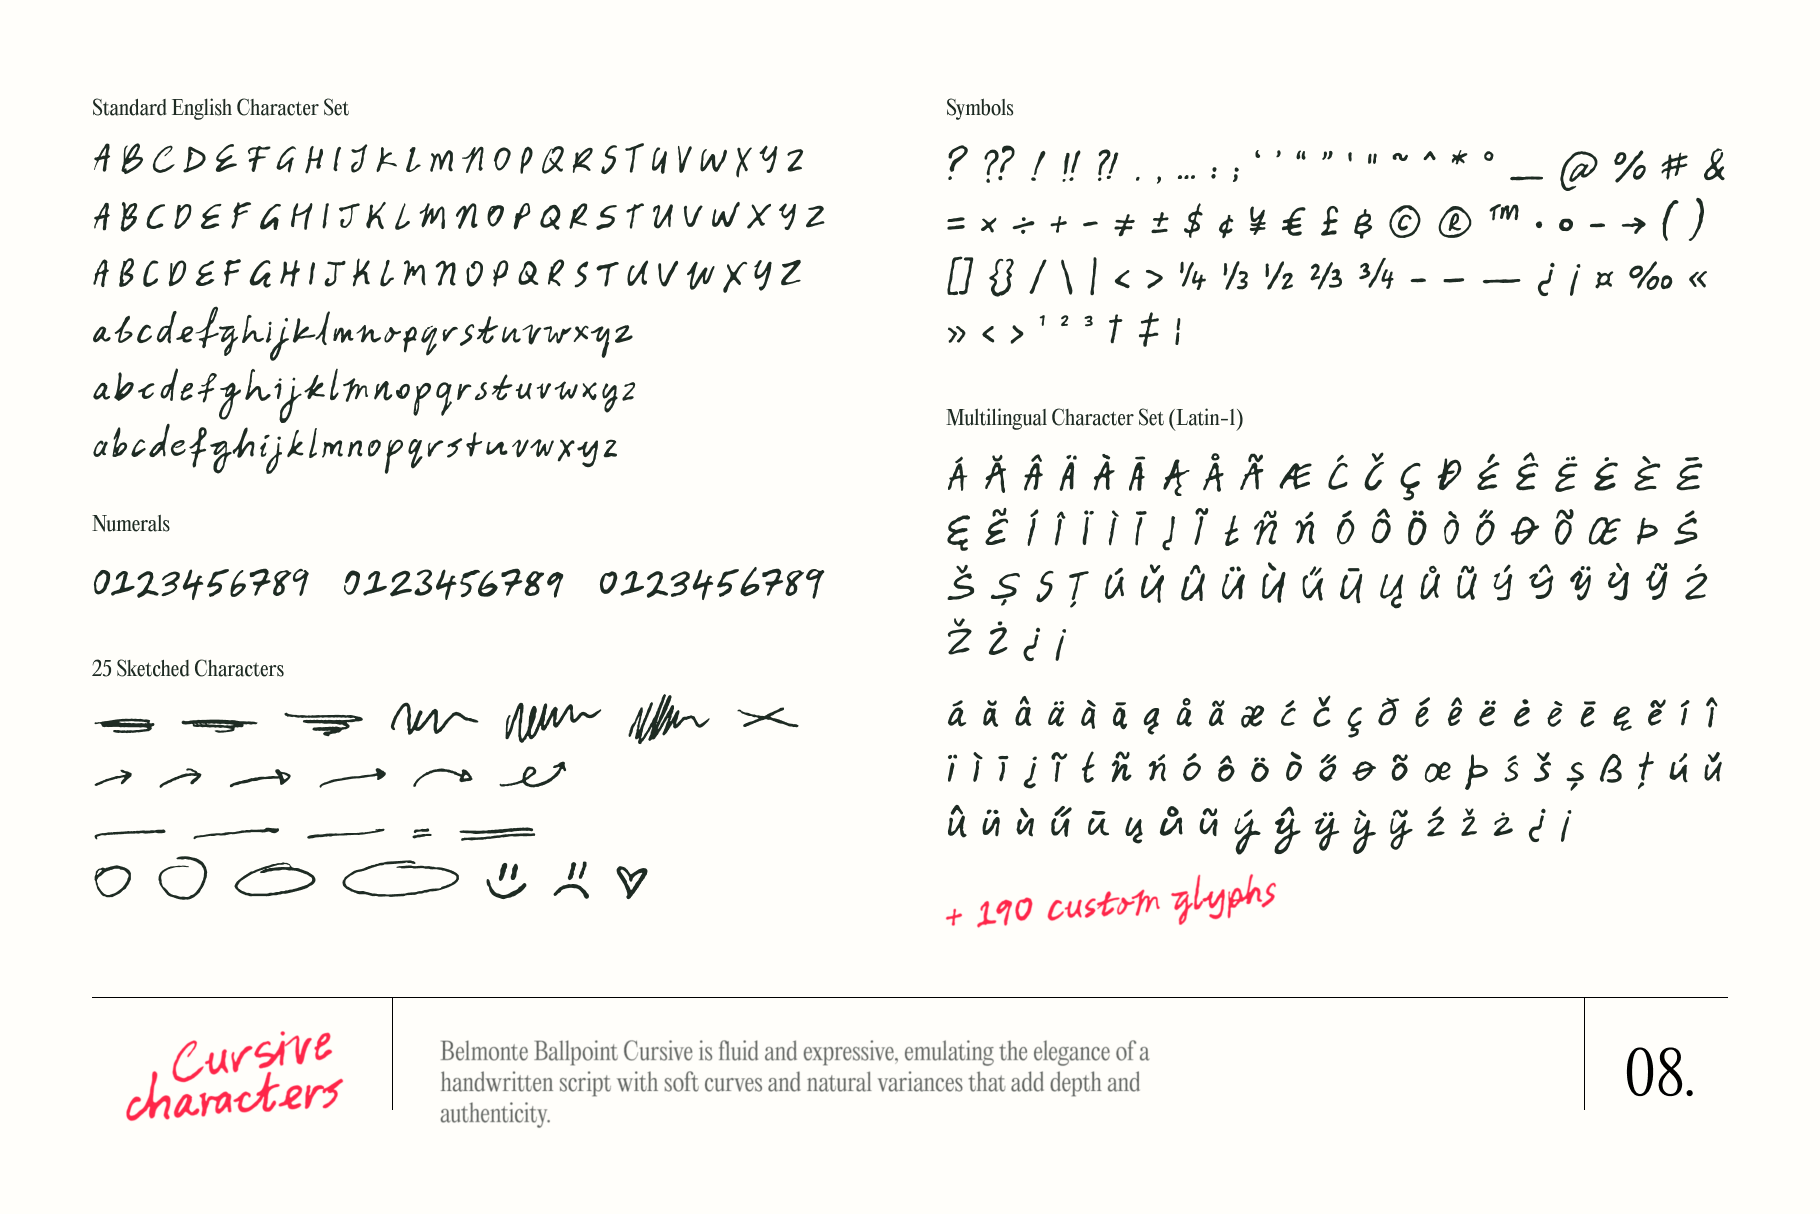 Standard English Character Set
A B C D E F G H I J K L M N O P Q R S T U V W X Y Z
A B C D E F G H I J K L M N O P Q R S T U V W X Y Z
A B C D E F G H I J K L M N O P Q R S T U V W X Y Z
a b c d e f g h i j k l m n o p q r s t u v w x y z
a b c d e f g h i j k l m n o p q r s t u v w x y z
a b c d e f g h i j k l m n o p q r s t u v w x y z
Numerals
0123456789 0123456789 0123456789
25 Sketched Characters
Symbols
? ?? ! !! ?! . , … : ; ‘ ’ “ ” ' " ~ ^ * ° _ @ % # &
= × ÷ + − ≠ ± $ ¢ ¥ € £ ₿ © ® ™ · ∘ - → ( )
[] {} / \ | < > ¼ ⅓ ½ ⅔ ¾ - – — ¿ ¡ ¤ ‰ «
» ‹ › ¹ ² ³ † ‡ ¦
Multilingual Character Set (Latin-1)
Á Ă Â Ä À Ā Ą Å Ã Æ Ć Č Ç Ð É Ê Ë Ė È Ē
Ę Ẽ Í Î Ï Ì Ī Į Ĩ Ł Ñ Ń Ó Ô Ö Ò Ő Ø Õ Œ Þ Ś
Š Ș S Ț Ú Ǔ Û Ü Ù Ű Ū Ų Ů Ũ Ý Ŷ Ÿ Ỳ Ỹ Ź
Ž Ż ¿ ¡
á ă â ä à ā ą å ã æ ć č ç ð é ê ë ė è ē ę ẽ í î
ï ì ī į ĩ ł ñ ń ó ô ö ò ő ø õ œ þ ś š ș ß ț ú ǔ
û ü ù ű ū ų ů ũ ý ŷ ÿ ỳ ỹ ź ž ż ¿ ¡
+ 190 custom glyphs
Cursive
characters
Belmonte Ballpoint Cursive is fluid and expressive, emulating the elegance of a
handwritten script with soft curves and natural variances that add depth and
authenticity.
08.